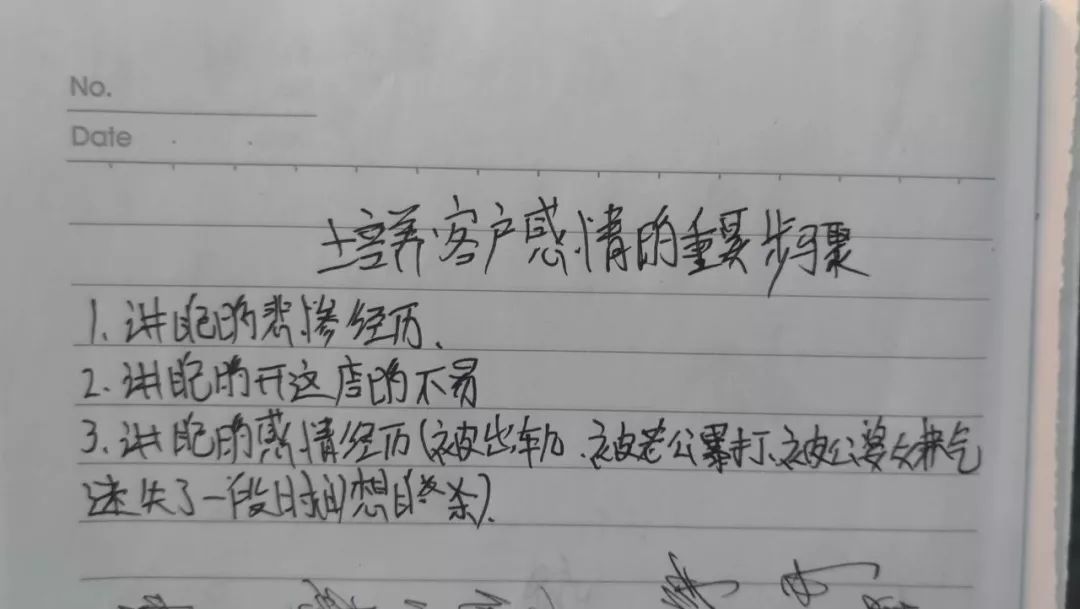 No.
Date
培养客户感情的重要步骤
1. 讲自己的悲惨经历.
2. 讲自己的开这店的不易
3. 讲自己的感情经历(被出轨、被老公暴打、被公婆欺气
迷失了一段时间想自杀).